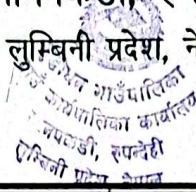 लुम्बिनी प्रदेश, ने
गाउँपालिका
गाउँ कार्यपालिका कार्यालय
रुपन्देही
लुम्बिनी प्रदेश नेपाल